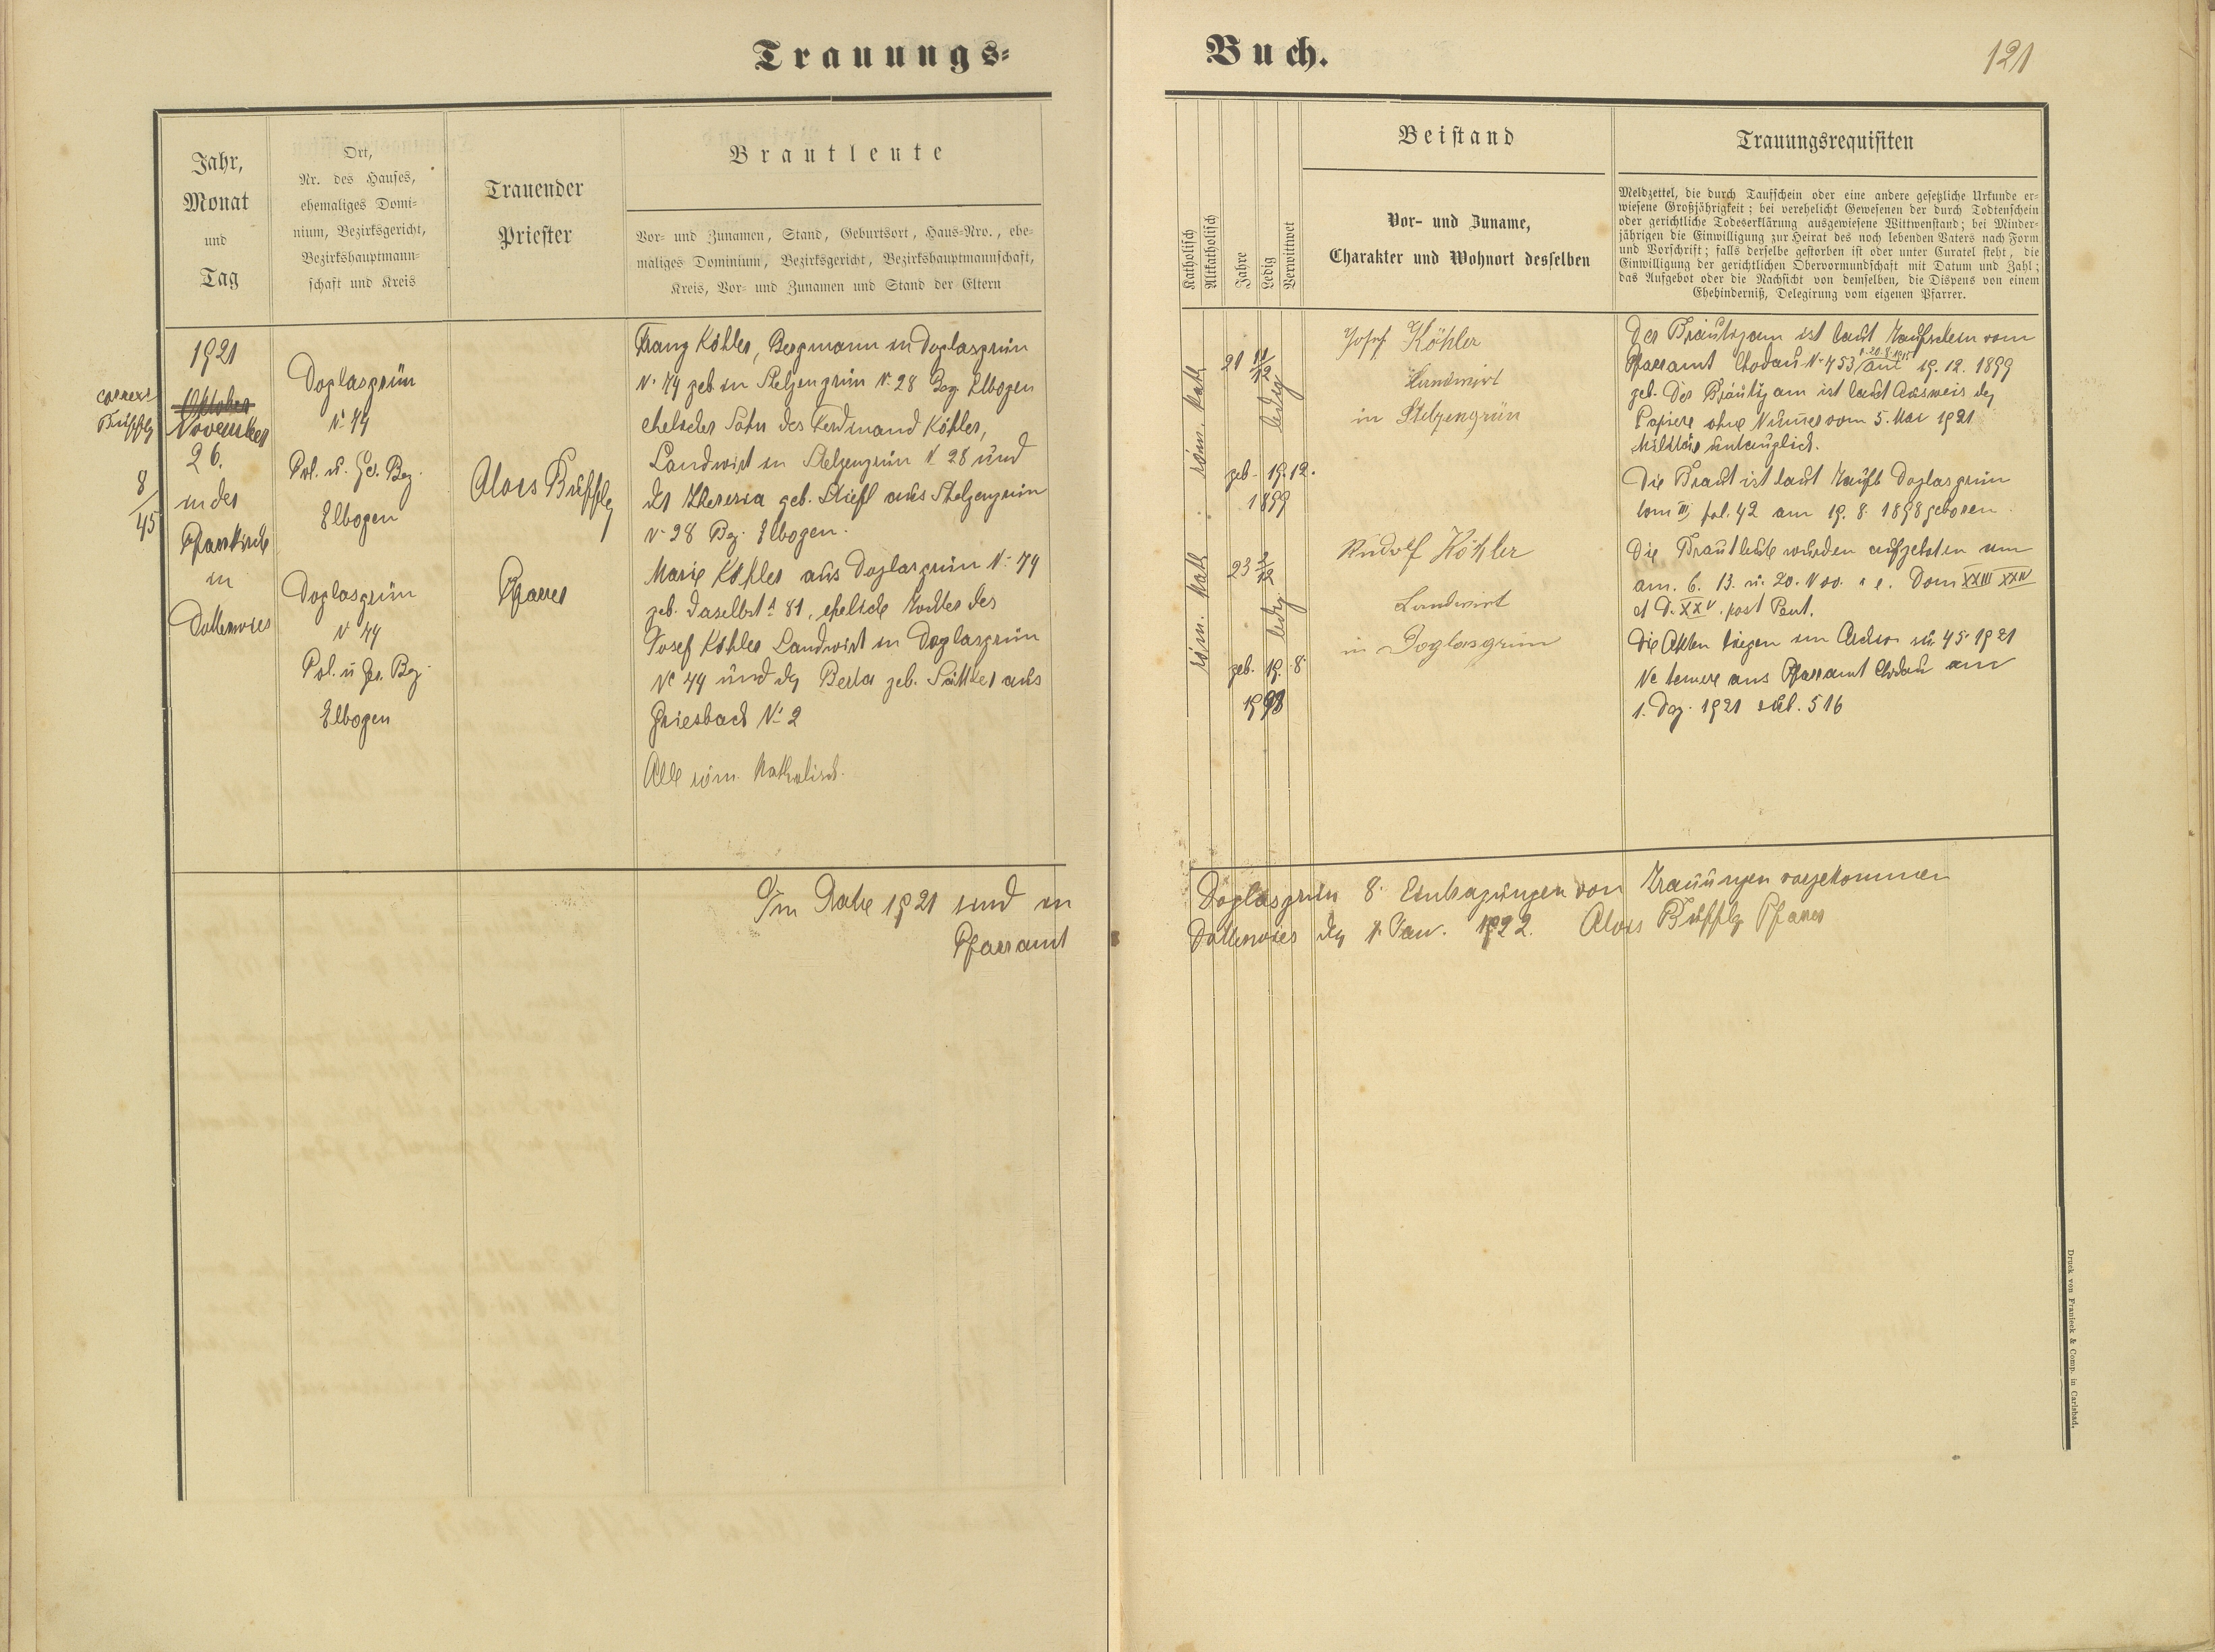 Trauungs-
Buch.
121
Jahr,
Monat
und
Tag
Ort,
Nr. des Hauses,
ehemaliges Domi-
nium, Bezirksgericht,
Bezirkshauptmann-
schaft und Kreis
Trauender
Priester
Brautleute
Vor- und Zunamen, Stand, Geburtsort, Haus-Nro., ehe-
maliges Dominium, Bezirksgericht, Bezirkshauptmannschaft,
Kreis, Vor- und Zunamen und Stand der Eltern
Katholisch
Altkatholisch
Jahre
Ledig
Verwittwet
Beistand
Vor- und Zuname,
Charakter und Wohnort desselben
Trauungsrequisiten
Meldzettel, die durch Taufschein oder eine andere gesetzliche Urkunde er-
wiesene Großjährigkeit; bei verehelicht Gewesenen der durch Todtenschein
oder gerichtliche Todeserklärung ausgewiesene Wittwenstand; bei Minder-
jährigen die Einwilligung zur Heirat des noch lebenden Vaters nach Form
und Vorschrift; falls derselbe gestorben ist oder unter Curatel steht, die
Einwilligung der gerichtlichen Obervormundschaft mit Datum und Zahl;
das Aufgebot oder die Nachsicht von demselben, die Dispens von einem
Ehehinderniß, Delegirung vom eigenen Pfarrer.
1921
Oktober
November
26.
in der
Pfarrkirche
in
Dottenwies
8/45
Doglasgrün
N 74
Pol. u. Ger. Bez.
Elbogen
Doglasgrün
N 74
Pol. u Ger. Bez.
Elbogen
Alois
Pfarrer
Franz Köhler, Bergmann in Doglasgrün
N. 74 geb. in Stelzengrün N. 28 Bez. Elbogen
ehelicher Sohn des Ferdinand Köhler,
Landwirt in Stelzengrün N 28 und
der Theresia geb. Stiefl aus Stelzengrün
N 28 Bez. Elbogen.
Marie Köhler aus Doglasgrün N. 74
geb. daselbst N 81, eheliche Tochter des
Josef Köhler Landwirt in Doglasgrün
No 74 und der Berta geb. Sattler aus
Griesbach N. 2
Alle röm. Katholisch.
röm. kath
21 11/12
ledig
geb. 19.12.
1899
röm. kath
23 3/12
ledig
geb. 19. 8.
1898
Josef Köhler
Landwirt
in Stelzengrün
Rudolf Köhler
Landwirt
in Doglasgrün
Der Bräutigam ist laut Taufschein vom
Pfarramt Chodau N. 453 am 19. 12. 1899
geb. Der Bräutigam ist laut Ausweis der
Papiere ohne Nummer vom 5. Mai 1921
Militär untauglich.
Die Braut ist laut Taufb Doglasgrün
tom III, fol. 42 am 19. 8. 1898 geboren.
Die Brautleute wurden aufgeboten
am. 6. 13. u. 20. Nov. i. e. Dom XXIII XXIV
et D. XXV. post Pent.
Die Akten liegen im Archiv sub 45 1921
Ne temere ans Pfarramt Chodau am
1. Dez. 1921 sub. 516
Im Jahre 1921 sind im
Pfarramt
Doglasgrün 8. Eintragungen von Trauungen vorgekommen
Dottenwies der 1. Jan. 1922. Alois Pfarrer
Druck von Franieck & Comp. in Carlsbad.